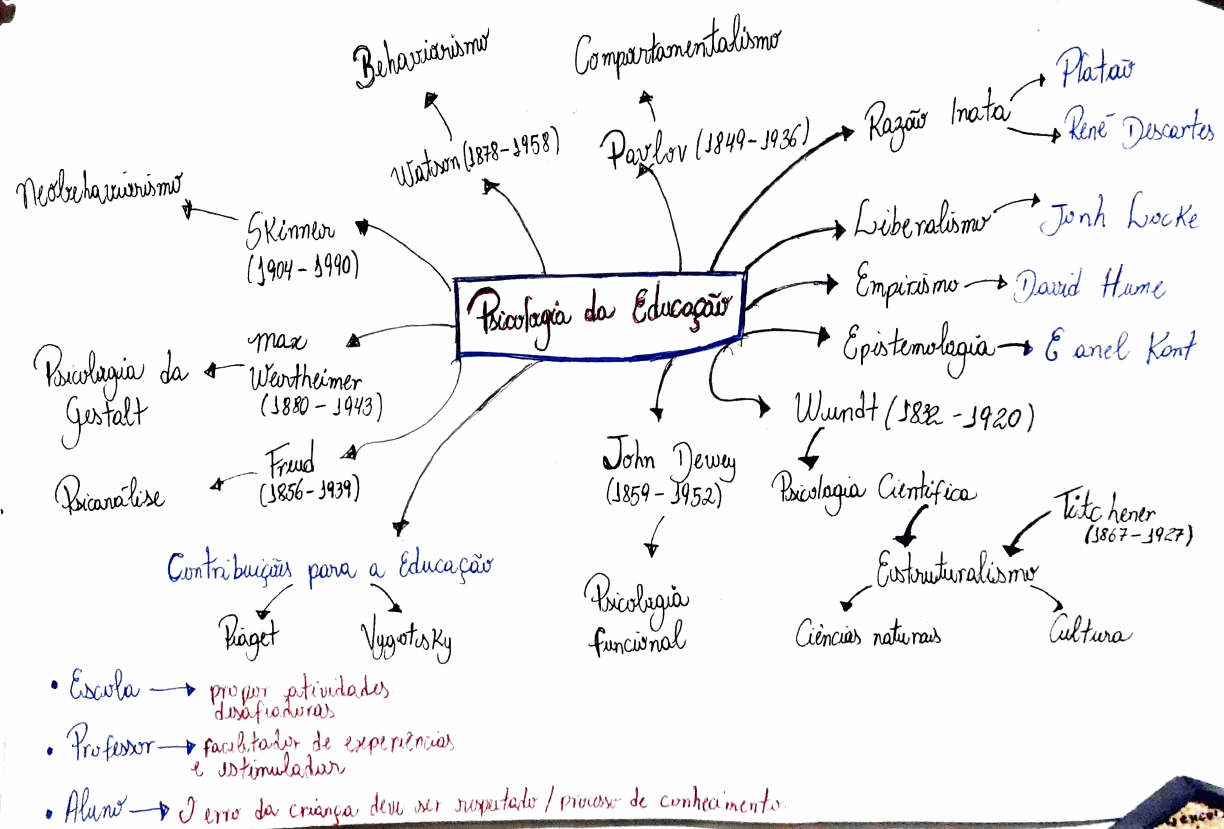 Behaviorismo
Comportamentalismo
Platão
Razão Inata
René Descartes
Watson (1878-1958)
Pavlov (1849-1936)
Neobehaviorismo
Skinner
(1904-1990)
Liberalismo
Jonh Locke
Empirismo
David Hume
Psicologia da Educação
Epistemologia
E anel Kant
Max
Wertheimer
(1880-1943)
Psicologia da
Gestalt
Wundt (1832-1920)
Freud
(1856-1939)
Psicanálise
John Dewey
(1859-1952)
Psicologia Científica
Titchener
(1867-1927)
Estruturalismo
Contribuições para a Educação
Piaget
Vygotsky
Psicologia
funcional
Ciências naturais
Cultura
• Escola → propor atividades
desafiadoras
• Professor → facilitador de experiências
e estimulador
• Aluno → O erro da criança deve ser respeitado / processo de conhecimento.